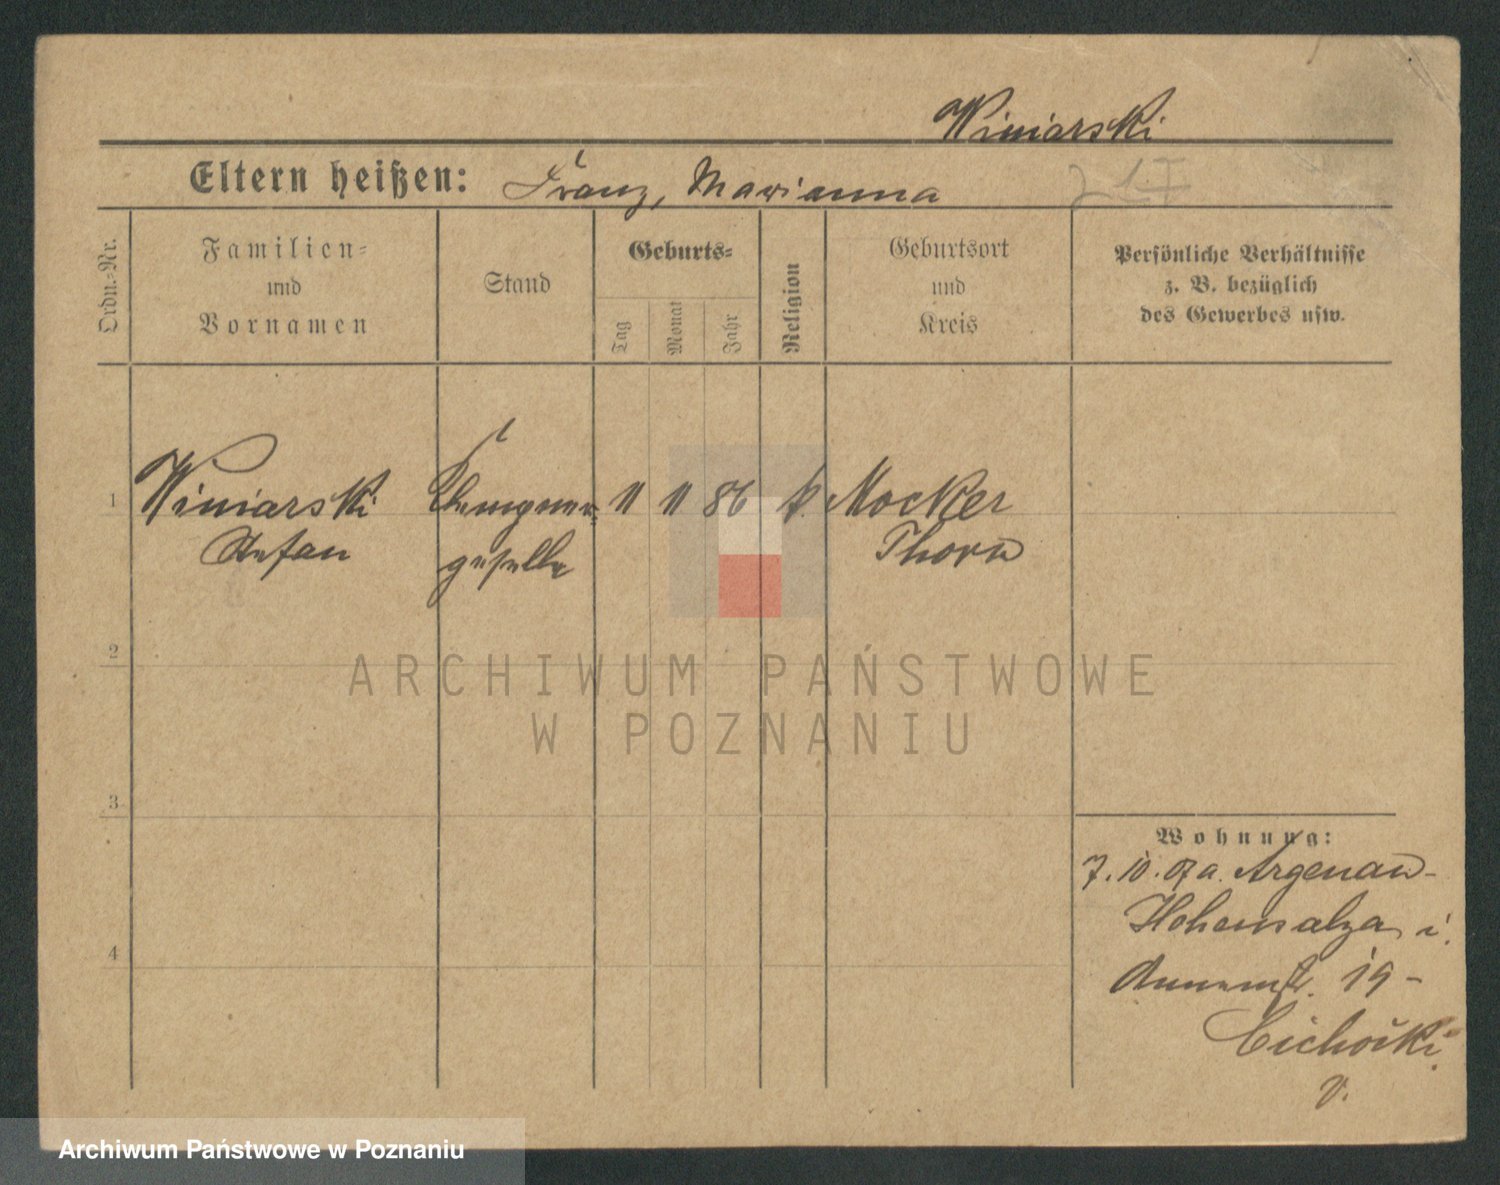 Winiarski
Eltern heißen: Franz, Marianna
Ordn.-Nr.
Familien-
und
Vornamen
Stand
Geburts-
Tag
Monat
Jahr
Religion
Geburtsort
und
Kreis
Persönliche Verhältnisse
z. B. bezüglich
des Gewerbes usw.
1 Winiarski Klempner- 11 11 86 k. Mocker
Stefan geselle Thorn
2
3
4
Wohnung:
7. 10. 07 a. Argenau-
Hohensalza i.
19-
Cichocki
v.
ARCHIWUM PAŃSTWOWE
W POZNANIU
Archiwum Państwowe w Poznaniu